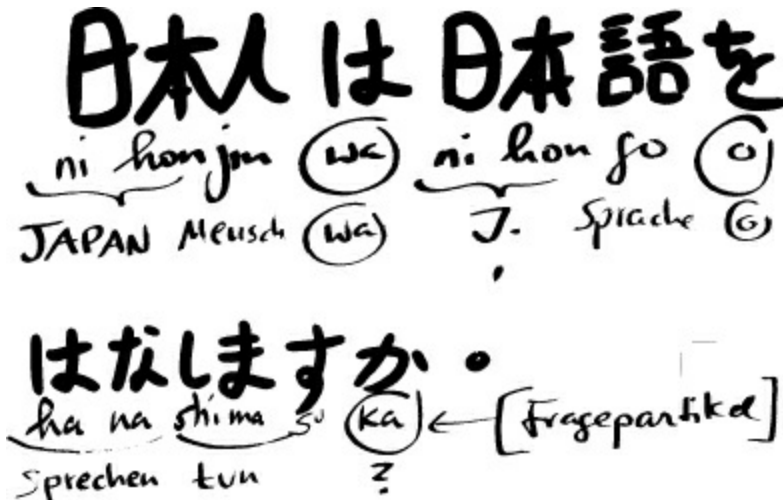 日本人は日本語を
ni hon jin wa ni hon go o
JAPAN Mensch wa J. Sprache o
はなしますか。
ha na shi ma su ka ← [Fragepartikel]
sprechen tun ?